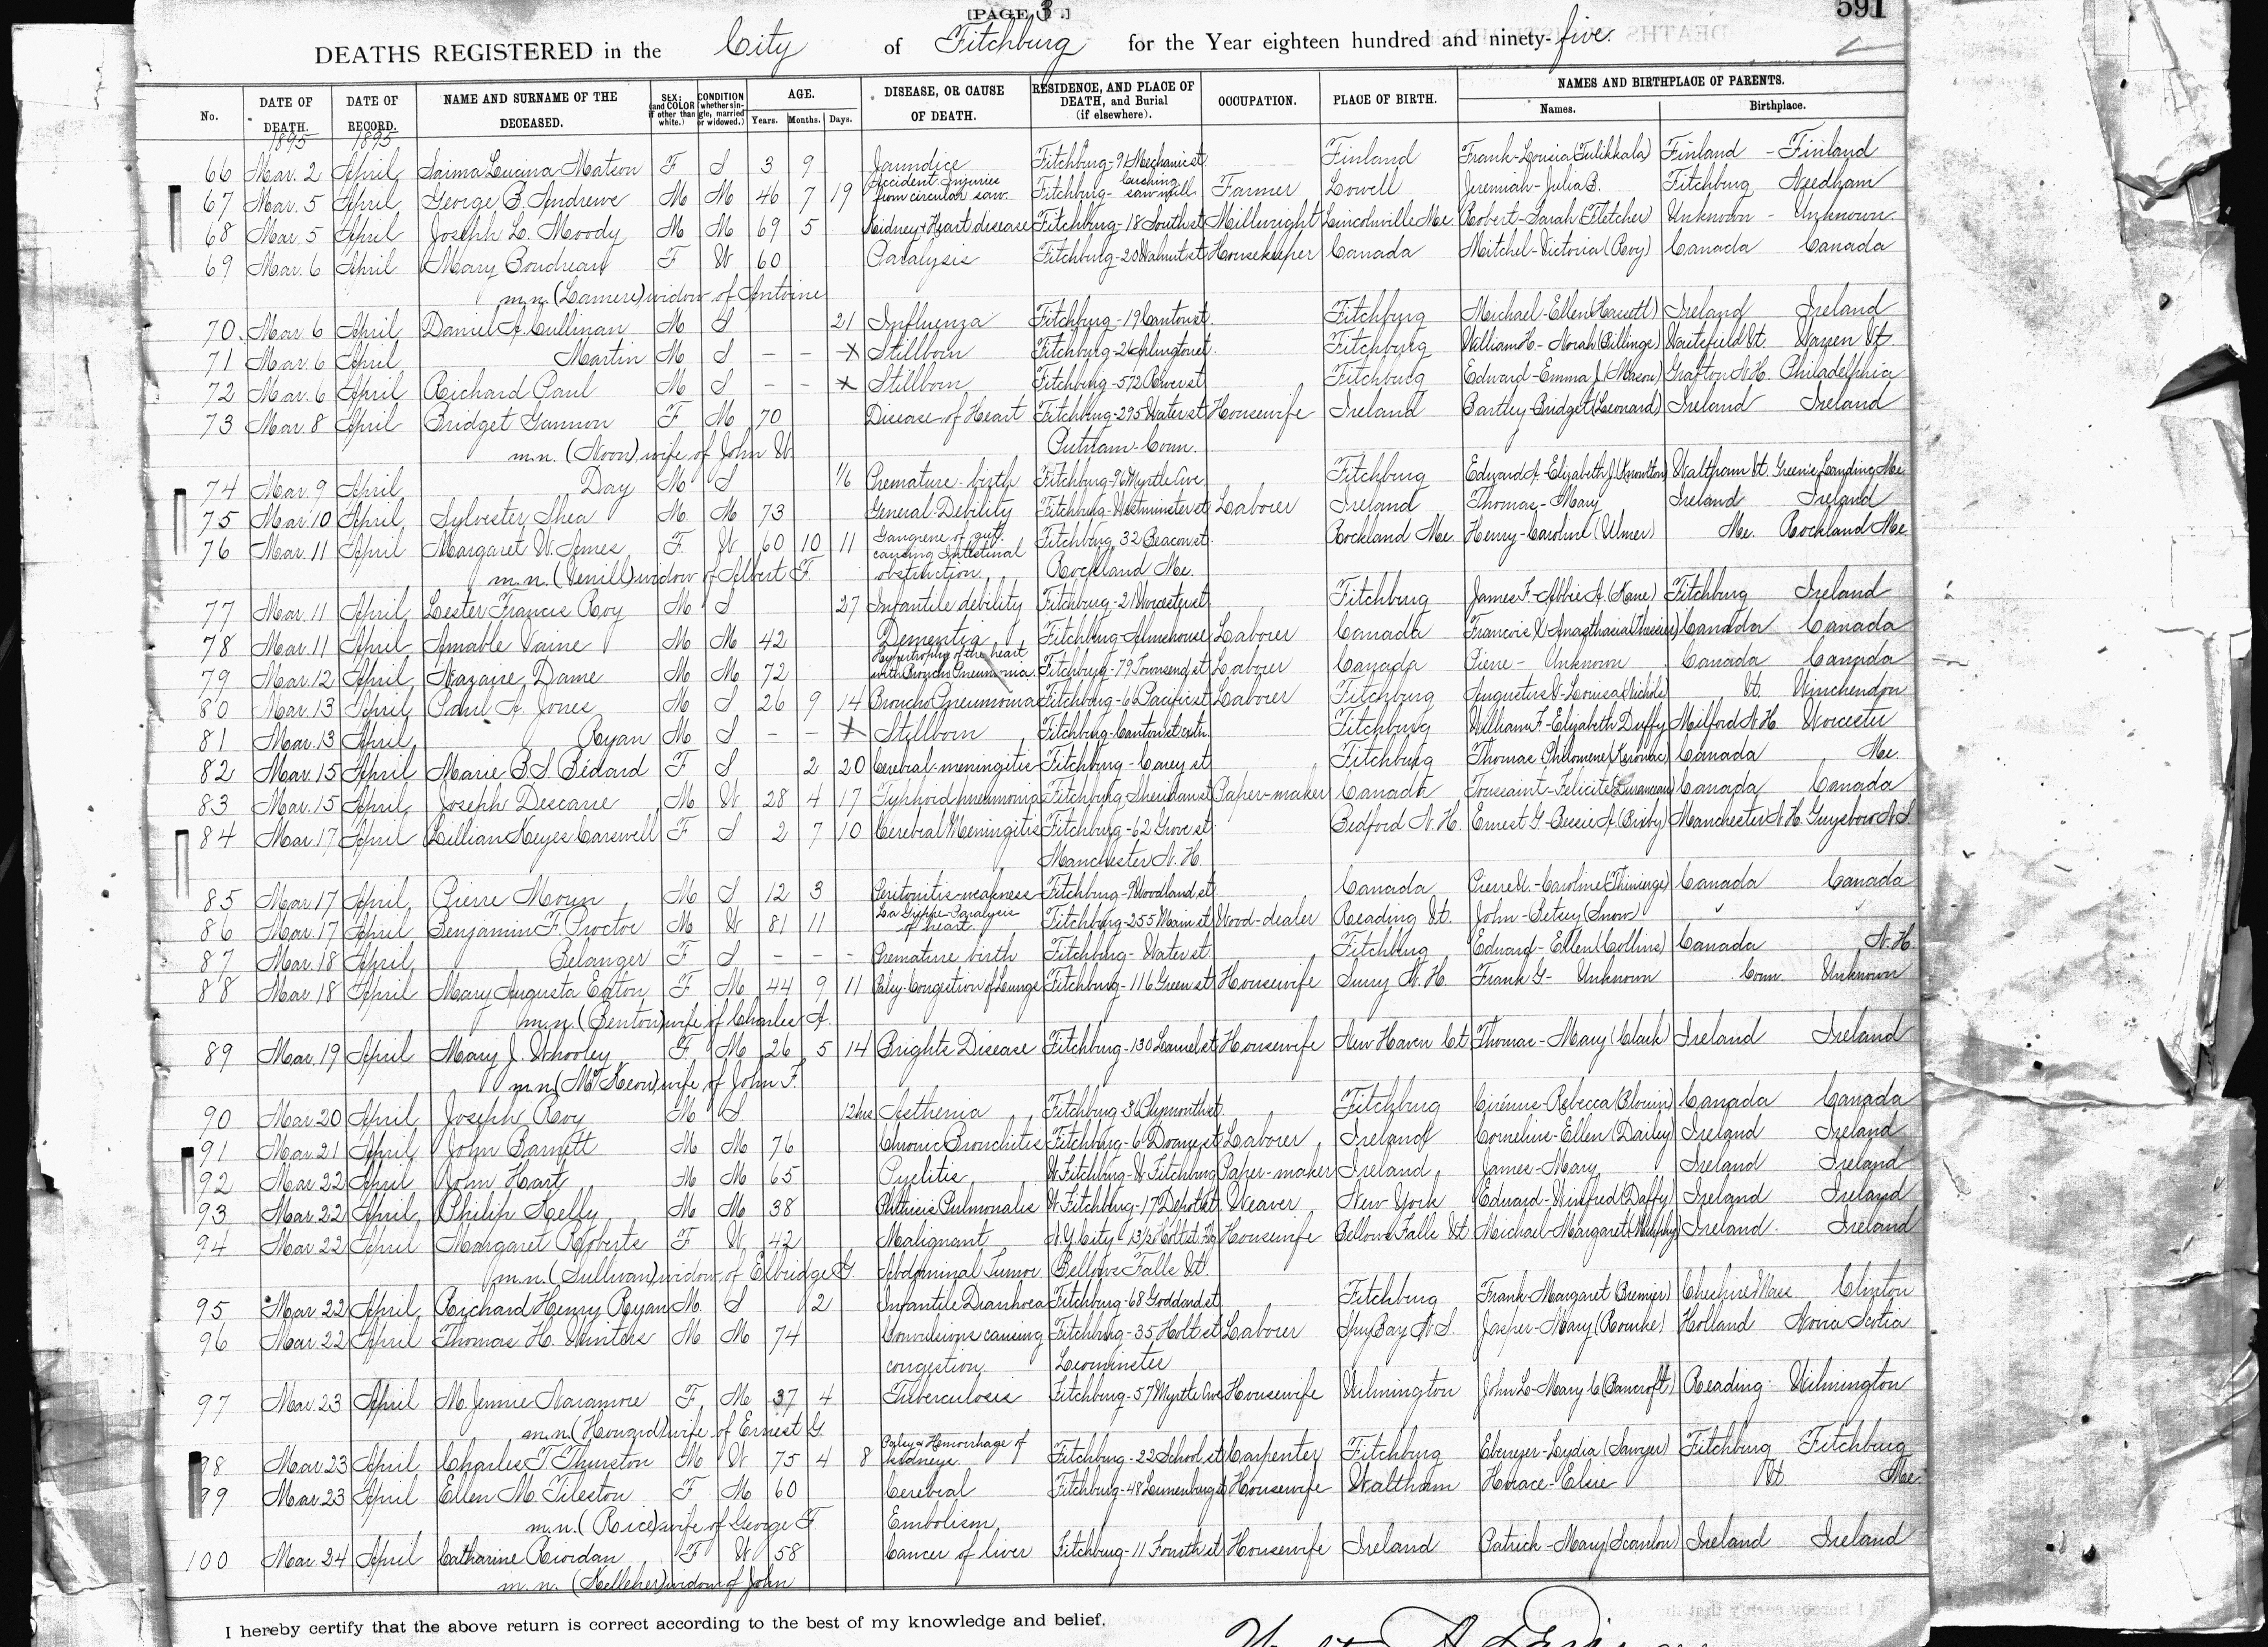 [PAGE 3.]
591
DEATHS REGISTERED in the City of Fitchburg for the Year eighteen hundred and ninety-five.
No. DATE OF DEATH. DATE OF RECORD. NAME AND SURNAME OF THE DECEASED. SEX; (and COLOR if other than white.) CONDITION (whether single, married or widowed.) AGE. Years. Months. Days. DISEASE, OR CAUSE OF DEATH. RESIDENCE, AND PLACE OF DEATH, and Burial (if elsewhere). OCCUPATION. PLACE OF BIRTH. NAMES AND BIRTHPLACE OF PARENTS. Names. Birthplace.
1895 1895
66 Mar. 2 April Saima Lucina Matson F S 3 9 Jaundice Fitchburg-91 Mechanic st Finland Frank-Lousia (Tulikkala) Finland - Finland
67 Mar. 5 April George B. Andrews M M 46 7 19 Accident. Injuries from circular saw. Fitchburg- Cushing saw mill Farmer Lowell Jeremiah-Julia B. Fitchburg Needham
68 Mar. 5 April Joseph L. Moody M M 69 5 Kidney & Heart disease Fitchburg-18 South st Millwright Lincolnville Me. Robert-Sarah (Fletcher) Unknown - Unknown
69 Mar. 6 April Mary Boudreau F W 60 Paralysis Fitchburg-20 Walnut st Housekeeper Canada Mitchel-Victoria (Roy) Canada Canada
m.n. (Lamere) widow of Antoine
70. Mar. 6 April Daniel A. Cullinan M S 21 Influenza Fitchburg-19 Canton st. Fitchburg Michael-Ellen (Hassett) Ireland Ireland
71 Mar. 6 April Martin M S - - x Stillborn Fitchburg-26 Arlington st. Fitchburg William H-Norah (Billings) Waitsfield Vt. Warren Vt.
72 Mar. 6 April Richard Paul M S - - x Stillborn Fitchburg-572 River st Fitchburg Edward-Emma J. (Mason) Grafton N.H. Philadelphia
73 Mar. 8 April Bridget Gannon F M 70 Disease of Heart Fitchburg-295 Water st Housewife Ireland Bartley-Bridget (Leonard) Ireland Ireland
m.n. (Noon) wife of John W. Putnam-Conn.
74 Mar. 9 April Day M S 1/6 Premature-birth Fitchburg-96 Myrtle Ave. Fitchburg Edward A-Elizabeth J. (Knowlton) Waltham Vt. Greens Landing Me.
75 Mar. 10 April Sylvester Shea M. M 73 General Debility Fitchburg-Westminster st Laborer Ireland Thomas-Mary Ireland Ireland
76 Mar. 11 April Margaret W. Ames F. W 60 10 11 Gangrene of gut, causing Intestinal obstruction. Fitchburg 32 Beacon st. Rockland Me. Henry-Caroline (Ulmer) Me. Rockland Me.
m.n. (Verrill) widow of Albert F. Rockland Me.
77 Mar. 11 April Lester Francis Roy M S 27 Infantile debility Fitchburg-21 Worcester st Fitchburg James F-Abbie A. (Kane) Fitchburg Ireland
78 Mar. 11 April Amable Vaine M M 42 Dementia Fitchburg-Almshouse Laborer Canada Francois X-Anasthasia (Thessier) Canada Canada
79 Mar. 12 April Nazarre Dame M M 72 Hypertrophy of the heart with Broncho Pneumonia. Fitchburg-79 Townsend st Laborer Canada Pierre- Unknown Canada Canada
80 Mar. 13 April Paul A. Jones M S 26 9 14 Broncho Pneumonia Fitchburg-66 Pacific st Laborer Fitchburg Augustus D-Louisa (Nichols) Vt. Winchendon
81 Mar. 13 April Ryan M S - - x Stillborn Fitchburg-Canton st extn. Fitchburg William F-Elizabeth Duffy Milford N.H. Worcester
82 Mar. 15 April Marie B.S. Bedard F S 2 20 Cerebral-meningitis Fitchburg-Carey st Fitchburg Thomas Philomene (Kerouac) Canada Me.
83 Mar. 15 April Joseph Descarre M W 28 4 17 Typhoid pneumonia Fitchburg Sheridan st Paper-maker Canada Toussaint-Felicite (Duranceau) Canada Canada
84 Mar. 17 April Lillian Keyes Carswell F S 2 7 10 Cerebral Meningitis Fitchburg-62 Grove st Bedford N.H. Ernest G-Bessie A. (Bixby) Manchester N.H. Guysboro N.S.
Manchester N.H.
85 Mar. 17 April Pierre Morin M S 12 3 Peritonitis-weakness Fitchburg-9 Woodland st. Canada Pierre U.-Caroline (Thivierge) Canada Canada
86 Mar. 17 April Benjamin F. Proctor M W 81 11 La Grippe-Paralysis of heart. Fitchburg-255 Main st Wood-dealer Reading Vt. John-Betsey (Snow)
87 Mar. 18 April Belanger F S - - - Premature birth Fitchburg-Water st. Fitchburg Edward-Ellen (Collins) Canada N.H.
88 Mar. 18 April Mary Augusta Eaton F M 44 9 11 Palsy-Congestion of Lungs Fitchburg-116 Green st Housewife Surry N.H. Frank G- Unknown Conn. Unknown
m.n. (Benton) wife of Charles A.
89 Mar. 19 April Mary J. Whooley F. M 26 5 14 Brights Disease Fitchburg-130 Laurel st Housewife New Haven Ct Thomas-Mary (Clark) Ireland Ireland
m.n. (McKeon) wife of John F.
90 Mar. 20 April Joseph Roy M S 12 hrs Asthenia Fitchburg-31 Plymouth st. Fitchburg Cirénus-Rebecca (Blouin) Canada Canada
91 Mar. 21 April John Barnett M M 76 Chronic Bronchitis Fitchburg-6 Doane st Laborer Ireland Cornelius-Ellen (Dailey) Ireland Ireland
92 Mar. 22 April John Hart M M 65 Pyelitis W. Fitchburg-W. Fitchburg Paper-maker Ireland James-Mary Ireland Ireland
93 Mar. 22 April Philip Kelly M M 38 Phthisis Pulmonalis W. Fitchburg-17 Depot st Weaver New York Edward-Winifred (Daffy) Ireland Ireland
94 Mar. 22 April Margaret Roberts F W 42 Malignant N.Y. City-13½ Holt st. Fbg Housewife Bellows Falls Vt Michael-Margaret (Murphy) Ireland Ireland
m.n. (Sullivan) widow of Elbridge G. Abdominal Tumor Bellows Falls Vt.
95 Mar. 22 April Richard Henry Ryan M. S 2 Infantile Diarrhoea Fitchburg-68 Goddard st. Fitchburg Frank-Margaret (Bremer) Cheshire Mass. Clinton
96 Mar. 22 April Thomas H. Winters M M 74 Convulsions causing Fitchburg-35 Holt st Laborer Spry Bay N.S. Jasper-Mary (Rourke) Holland Nova Scotia
congestion. Leominster
97 Mar. 23 April M. Jennie Naramore F M 37 4 Tuberculosis Fitchburg-57 Myrtle Ave Housewife Wilmington John L-Mary C. (Bancroft) Reading Wilmington
m.n. (Howard) wife of Ernest G.
98 Mar. 23 April Charles T. Thurston M W 75 4 8 Palsy & Hemorrhage of kidneys. Fitchburg-22 School st Carpenter Fitchburg Ebenezer-Lydia (Sawyer) Fitchburg Fitchburg
99 Mar. 23 April Ellen M. Tileston F M 60 Cerebral Fitchburg-48 Lunenburg st Housewife Waltham Horace-Elsie Vt. Me.
m.n. (Rice) wife of George F. Embolism
100 Mar. 24 April Catharine Riordan F W 58 Cancer of liver Fitchburg-11 Fourth st Housewife Ireland Patrick-Mary (Scanlon) Ireland Ireland
m.n. (Kelleher) widow of John
I hereby certify that the above return is correct according to the best of my knowledge and belief.